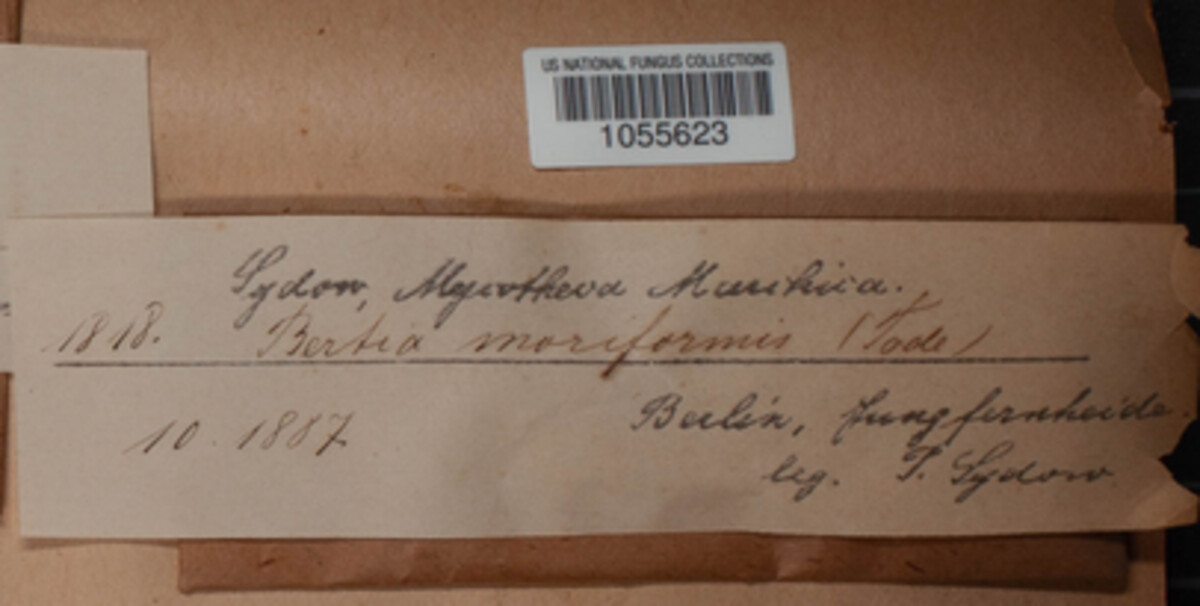 US NATIONAL FUNGUS COLLECTIONS
1055623
Sydow, Mycotheca Marchica.
1818. Bertia moriformis (Tode)
10. 1887
Berlin, Jungfernheide.
leg. P. Sydow